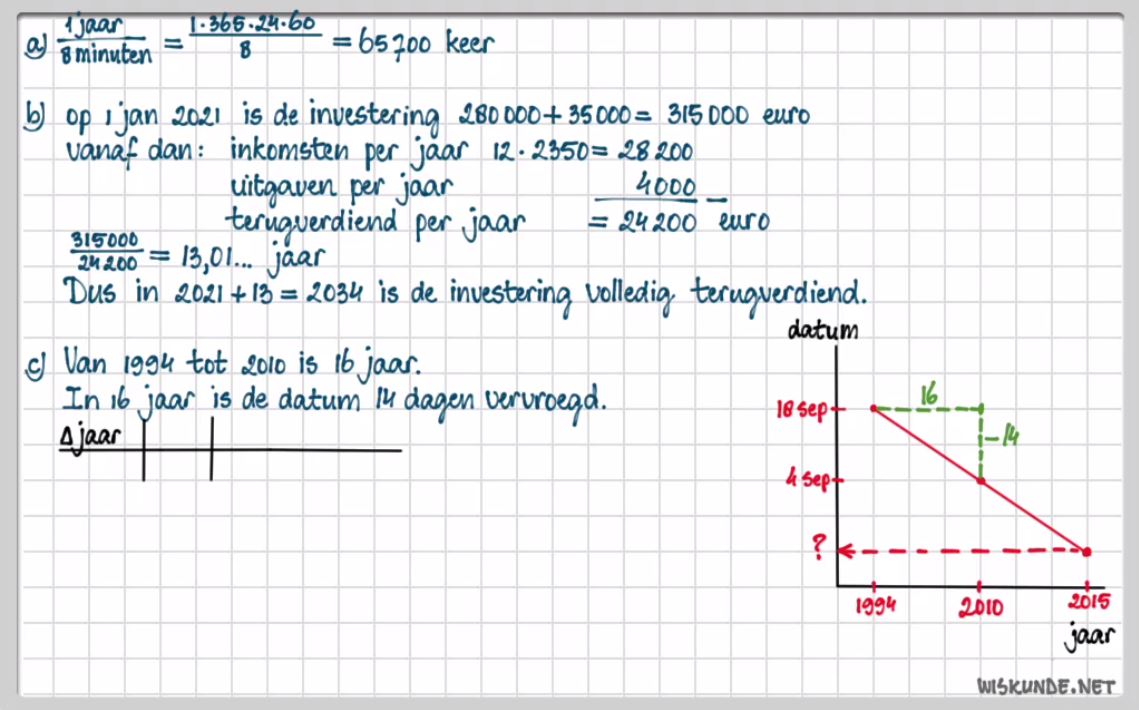 a) 1 jaar / 8 minuten = 1·365·24·60 / 8 = 65700 keer
b) op 1 jan 2021 is de investering 280 000 + 35 000 = 315 000 euro
vanaf dan: inkomsten per jaar 12 · 2350 = 28 200
uitgaven per jaar 4000 –
terugverdiend per jaar = 24 200 euro
315000 / 24200 = 13,01... jaar
Dus in 2021 + 13 = 2034 is de investering volledig terugverdiend.
c) Van 1994 tot 2010 is 16 jaar.
In 16 jaar is de datum 14 dagen vervroegd.
Δ jaar
datum
16
18 sep
-14
4 sep
?
1994 2010 2015
jaar
WISKUNDE.NET